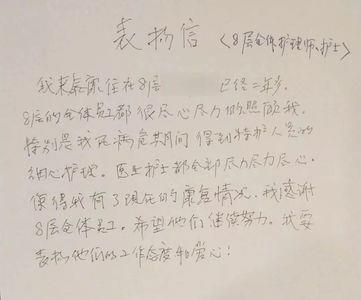 表扬信 〈8层全体护理师、护士〉
我来长期住在8层 已经二年多。
8层的全体员工都很尽心尽力的照顾我。
特别是我在病危期间得到特护人员的
细心护理。医生护士都全部尽力尽力尽心。
使得我有了现在的康复情况。我感谢
8层全体员工。希望他们继续努力。我要
表扬他们的工作态度和爱心！